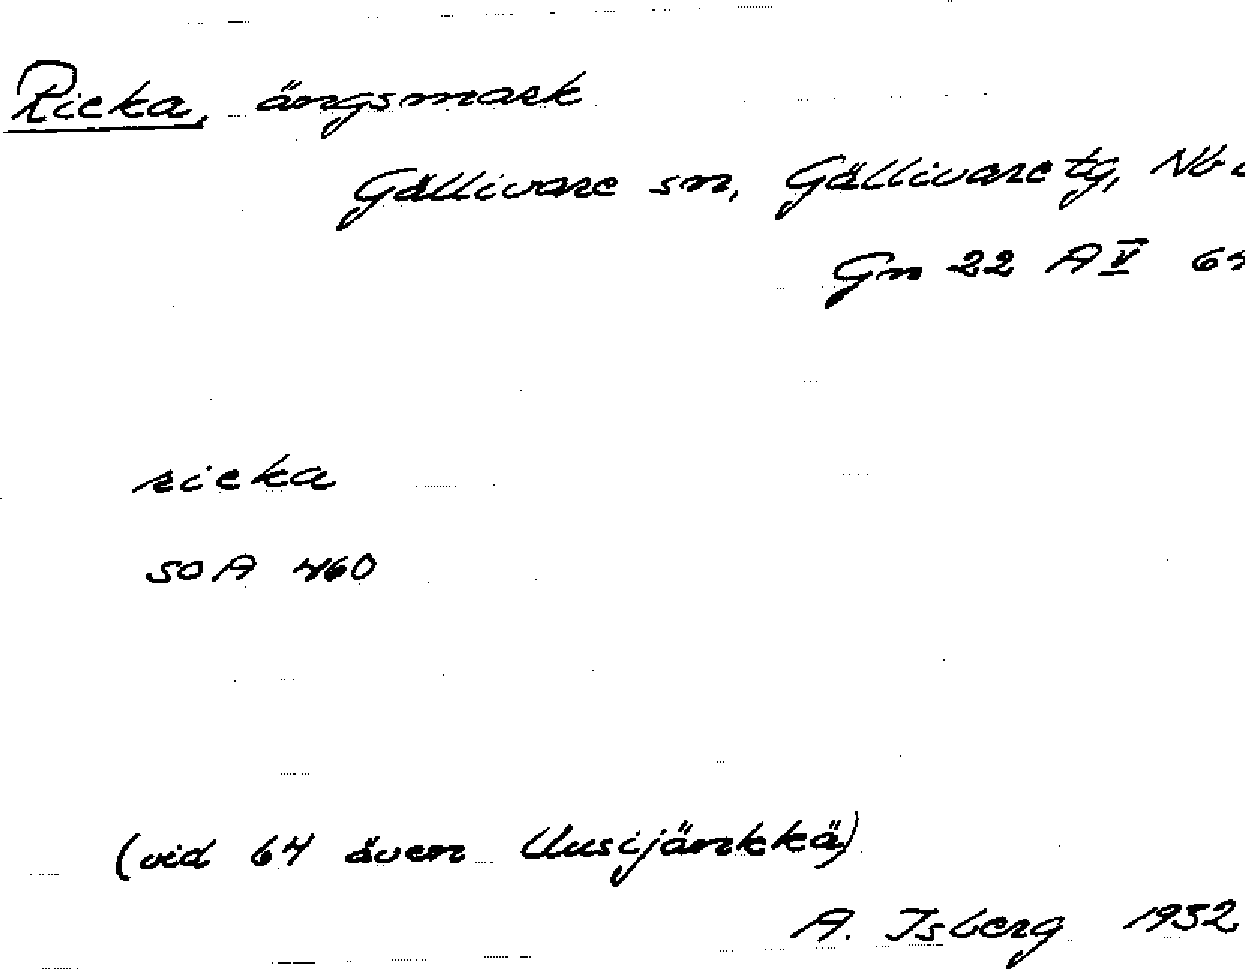 Rieka, ängsmark
Gällivare sn, Gällivare tg, Nb
Gn 22 A V 64
rieka
SOA 460
(vid 64 även Uusijänkkä)
A. Isberg 1932